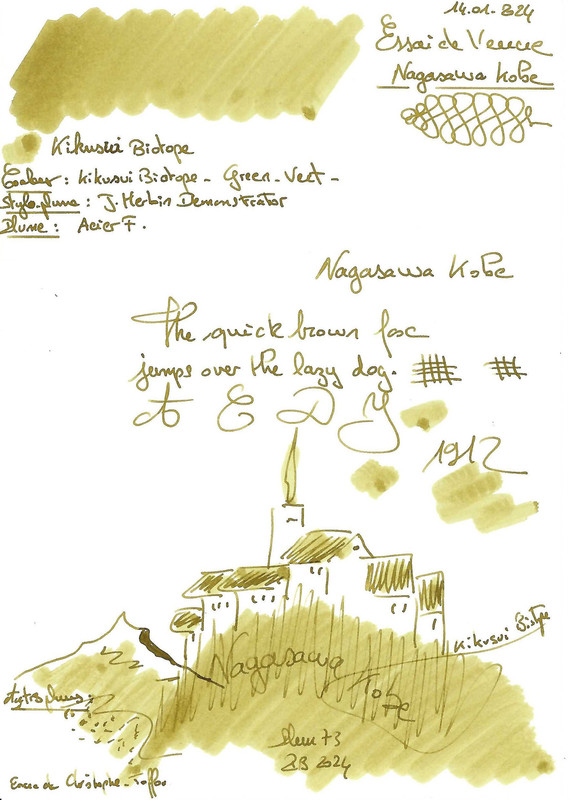 14.01.2024
Essai de Venue
Nagasawa Kobe
Kikusui Biotope
Couleur : Kikusui Biotope - Green - Vert -
Stylo-plume : J. Herbin Demonstrator
Plume : Acier F.
Nagasawa Kobe
The quick brown fox
jumps over the lazy dog.
A E D Y
1912
Kikusui Biotpe
Nagasawa
Kobe
stylos plumes :
73
2024
Encre de Christophe